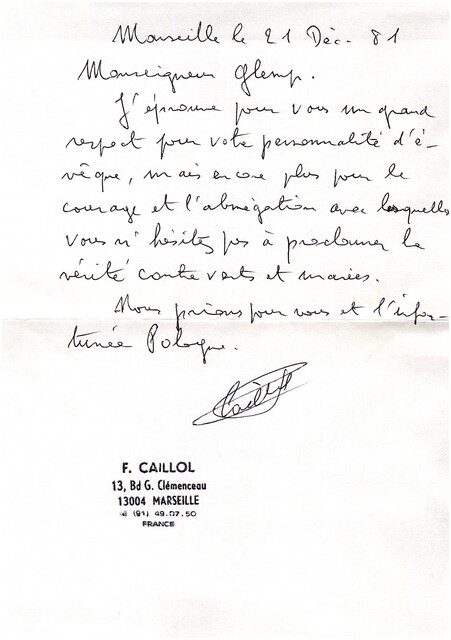 Marseille le 21 Déc. 81
Monseigneur Glemp.
J'éprouve pour vous un grand
respect pour votre personnalité d'é-
vêque, mais encore plus pour le
courage et l'abnégation avec lesquelles
vous n'hésitez pas à proclamer la
vérité contre vents et marées.
Nous prions pour vous et l'infor-
tunée Pologne.
Caillol
F. CAILLOL
13, Bd G. Clémenceau
13004 MARSEILLE
☎ (91) 49.07.50
FRANCE